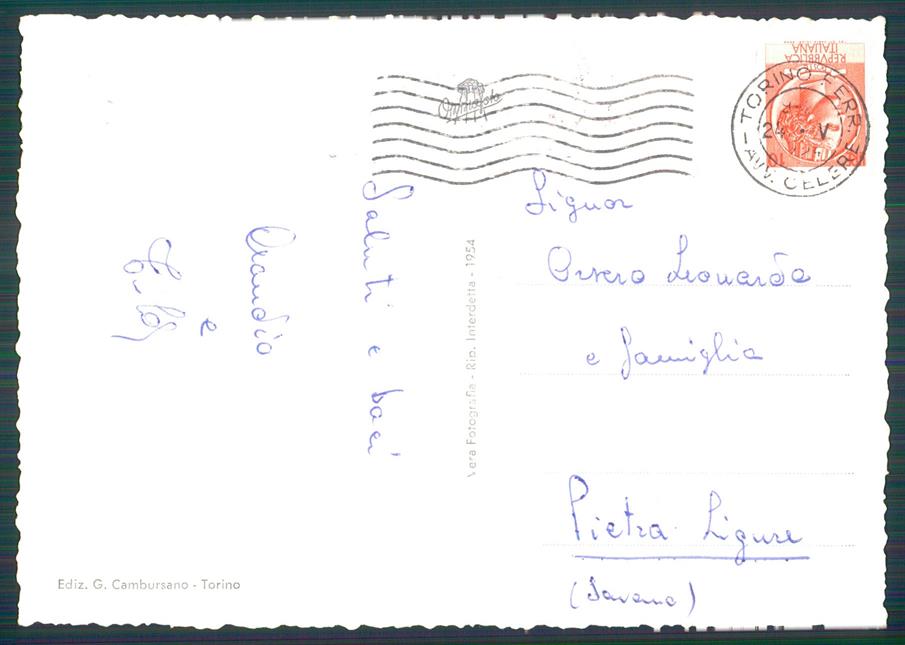 Saluti e baci
Claudio
e
Signor
Orsero Leonardo
e famiglia
Pietra Ligure
(Savona)
Vera Fotografia - Rip. Interdetta - 1954
Ediz. G. Cambursano - Torino
REPVBBLICA
ITALIANA
TORINO FERR.
24 · V
AVV. CELERE